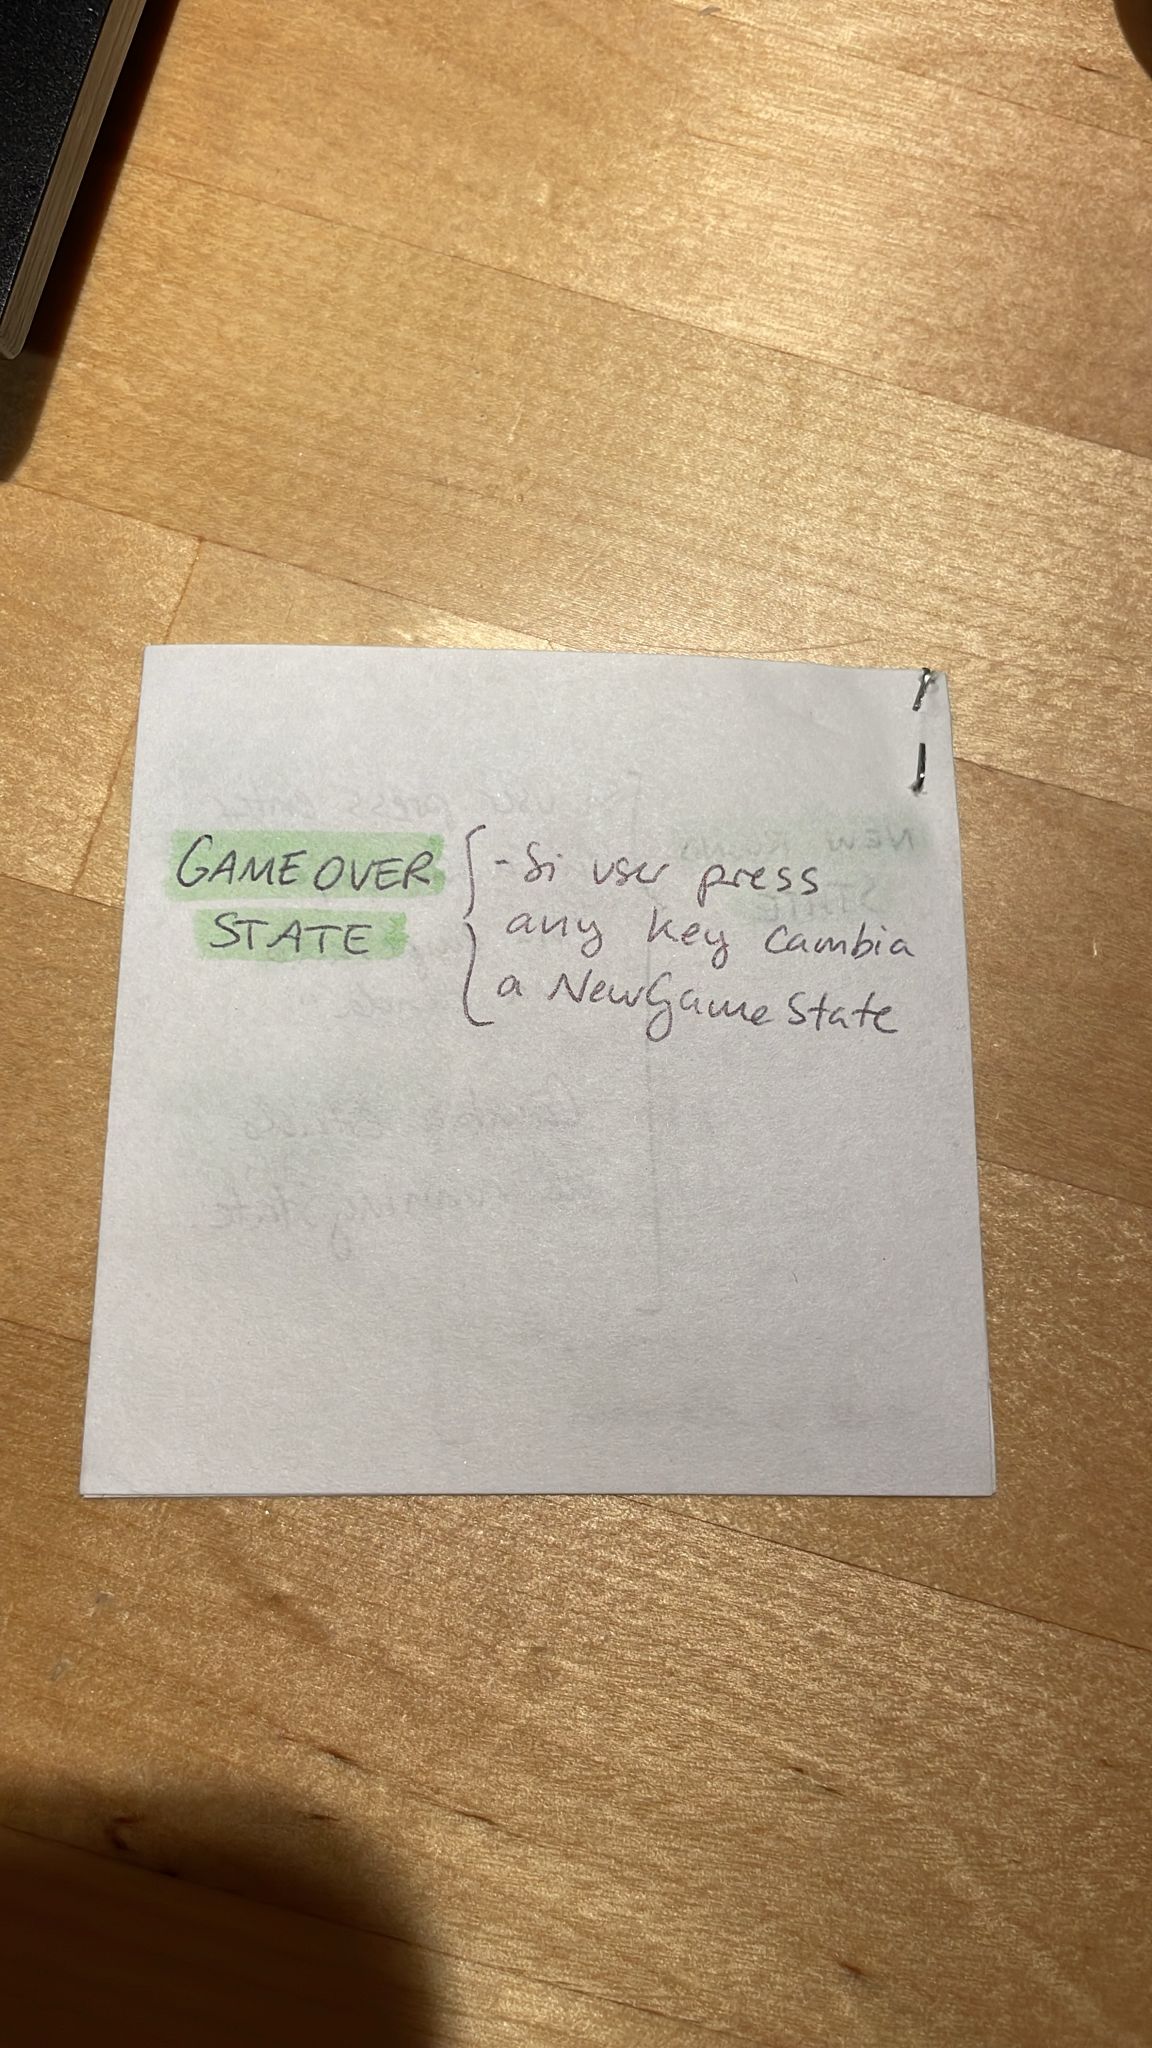 GAME OVER
STATE
- Si user press
any key cambia
a NewGame State